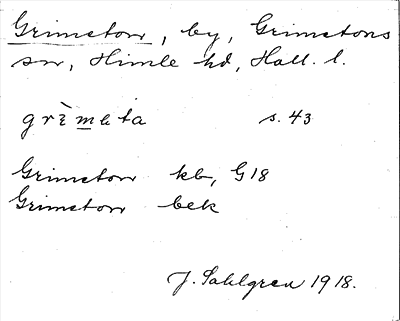 Grimeton, by, Grimetons
sn, Himle hd, Hall. l.
grìmeta s. 43
Grimeton kb, G18
Grimeton bek
J. Sahlgren 1918.